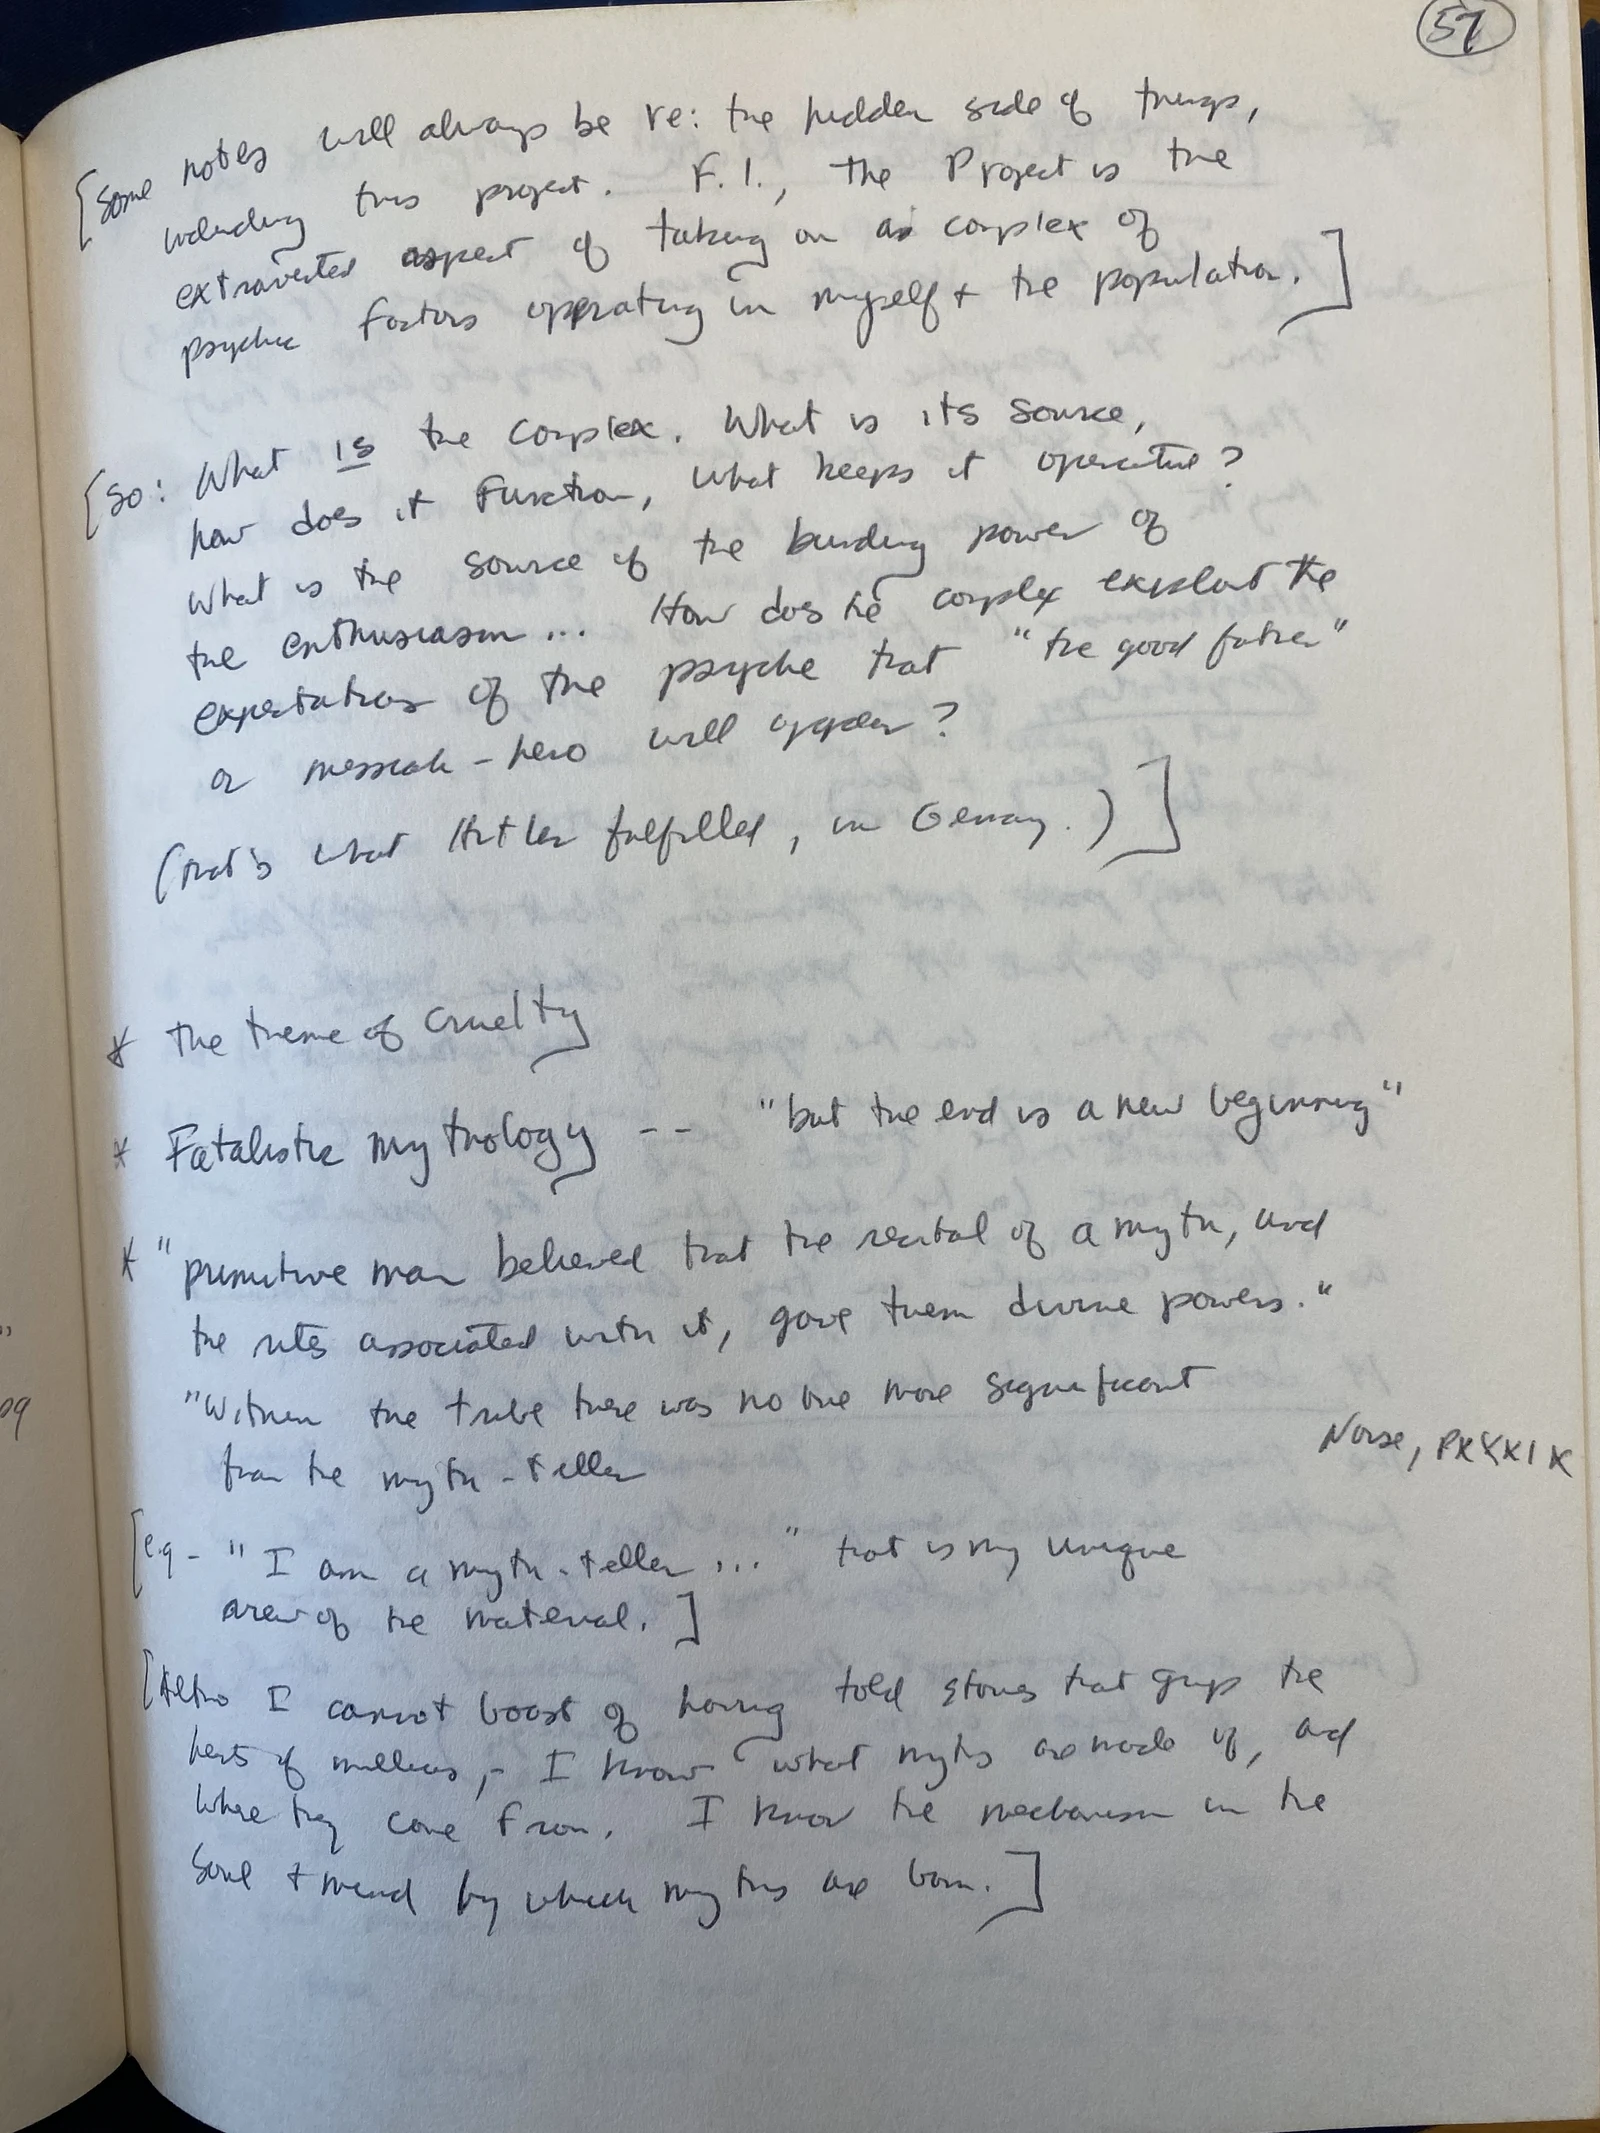 57
[Some notes will always be re: the hidden side of things,
including this project. F.I., the Project is the
extraverted aspect of taking on a complex of
psychic factors operating in myself + the population.]
[So: What is the complex. What is its source,
how does it function, what keeps it operative?
What is the source of the binding power of
the enthusiasm... How does the complex exploit the
expectations of the psyche that "the good father"
or messiah-hero will appear?
(that's what Hitler fulfilled, in Germany.)]
* The theme of cruelty
* Fatalistic mythology -- "but the end is a new beginning"
* "primitive man believed that the recital of a myth, and
the rites associated with it, gave them divine powers."
"Within the tribe there was no one more significant
than the myth-teller
Norse, P
[e.g - "I am a myth-teller..." that is my unique
area of the material.]
[Altho I cannot boast of having told stories that grip the
hearts of millions, - I know what myths are made of, and
where they come from. I know the mechanism in the
soul + mind by which myths are born.]
"